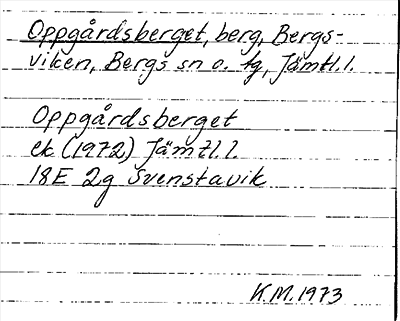 Oppgårdsberget, berg, Bergs-
viken, Bergs sn o. tg, Jämtl.l.
Oppgårdsberget
ek (1972) Jämtl.l.
18E 2g Svenstavik
K.M.1973